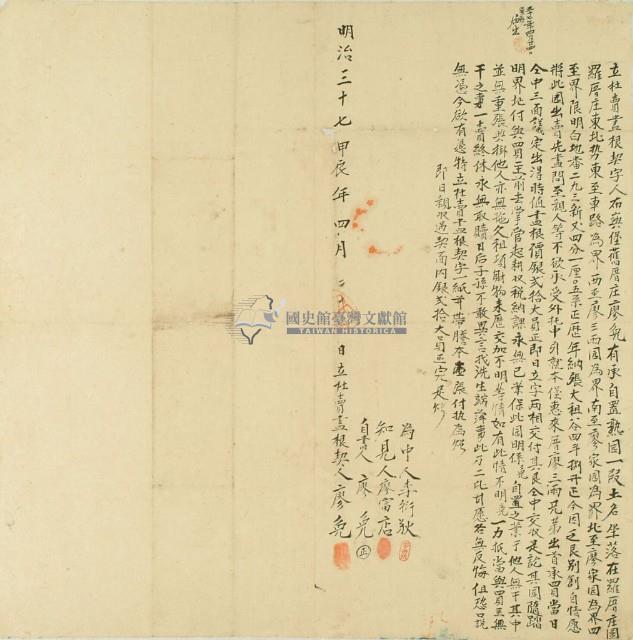 立杜賣盡根契字人布與堡舊厝庄廖兔有承自置熟園一段土名坐落在羅厝庄園
羅厝庄東北勢東至車路為界西至廖三兩園為界南至廖家園為界北至廖家園為界四
至界限明白地番二九三新丈四分一厘〇五系正歷年納張大租谷四斗捌升正今因乏艮別創自情愿
將此園出賣先盡問至親人等不欲承受外托中引就本堡惠來厝廖三兩兄弟出首承買當日
仝中三面議定出得時值盡根價銀弍拾大員正即日立字兩相交付其艮仝中交收足訖其園隨踏
明界址付與買主前去掌管起耕收稅納課永無己業保此園明係兔自置之業于他人無干其中
並無重張典掛他人亦無拖欠租項財物來歷交加不明等情如有此情不明兔一力抵當與買主無
干之事一賣終休永無取贖日后子孫不敢異言找洗生端滋事此乃二比甘愿各無反悔但恐口說
無憑今欲有憑特立杜賣盡根契字一紙並帶謄本壹張付執為炤
即日親收過契面內銀弍拾大員正完足炤
為中人李衍狄
知見人廖富店
自書人廖兔
明治三十七甲辰年四月二 日立杜賣盡根契人廖兔
國史館臺灣文獻館
TAIWAN HISTORICA